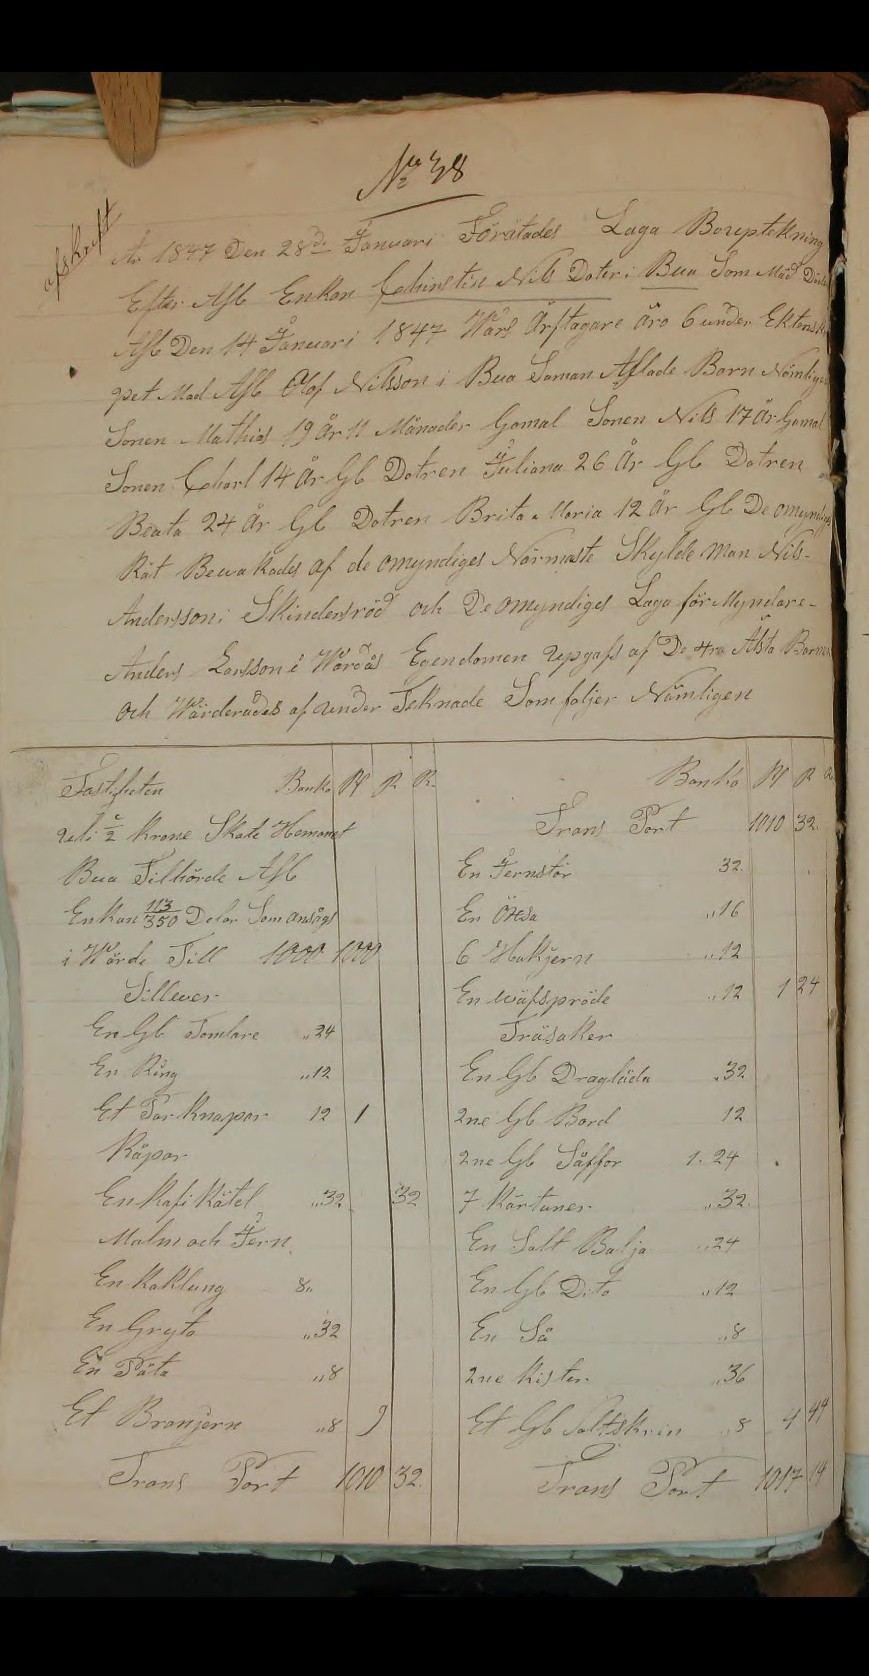 No 38
afskrift
År 1847 Den 28de Januari Förätades Laga Bouptekning
Efter Afl Enkan Cehirstin Nils Doter i Bua Som Mäd Döden
Afl Den 14 Januari 1847 Wars Arftagare äro 6 under Ektenska
pet Mad Afl Olof Nilsson i Bua Saman Aflade Barn Nämligen
Sonen Mathias 19 År 11 Månader Gamal Sonen Nils 17 År Gamal
Sonen Ceharl 14 År Gl Dotren Juliana 26 År Gl Dotren
Beata 24 År Gl Dotren Brita Maria 12 År Gl De omyndiges
Rät Bewakades af de omyndiges Närmaste Skylde Man Nils
Andersson i Skindersröd och De omyndiges Laga förMyndare
Anders Larsson i Wärdås Egendomen Upgafs af De 4ra Älsta Barnen
och Wärderades af under Teknade Som foljer Nämligen
Fastigheten Banko Rf R R
uti 1/2 Krono Skate Hemanet
Bua Tilhörde Afl
Enkan 113/350 Delar Som ansågs
i Wärde Till 1000 1000
Sillwer
En Gl Tomlare „24
En Ring „12
Et Par Knapar 12 1
Kåpar
En Kafi Kätel „32 32
Malm och Jern
En Kaklung 8„
En Gryta „32
En Pata „8
Et Branjern „8 9
Trans Port 1010 32
Banko Rf R R
Trans Port 1010 32
En Jernstör 32
En Öxsa „16
6 Hakjern „12
En wäfspröde „12 1 24
Träsaker
En Gl Draglåda „32
2ne Gl Bord 12
2ne Gl Såffor 1. 24
7 Kärtuner „32
En Salt Balja „24
En Gl Dito „12
En Så „8
2ne Kister „36
Et Gl Saltskrin „8 4 44
Trans Port 1017 14